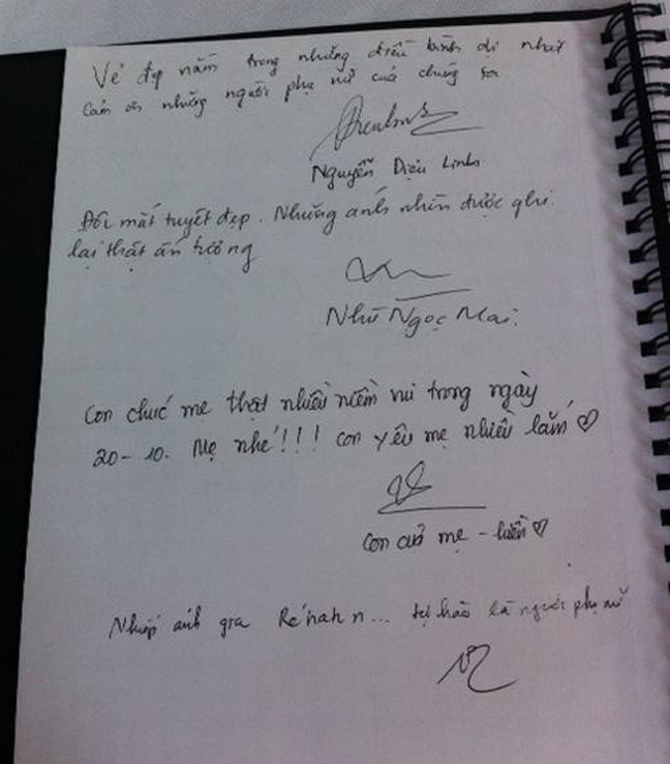 Vẻ đẹp nằm trong những điều bình dị nhất
Cảm ơn những người phụ nữ của chúng ta
Nguyễn Diệu Linh
Đôi mắt tuyệt đẹp. Những ánh nhìn được ghi
lại thật ấn tượng
Như Ngọc Mai.
Con chúc mẹ thật nhiều niềm vui trong ngày
20-10. Mẹ nhé!!! con yêu mẹ nhiều lắm ♡
Con của mẹ - hiền ♡
Nhiếp ảnh gia Réhahn... tự hào là người phụ nữ